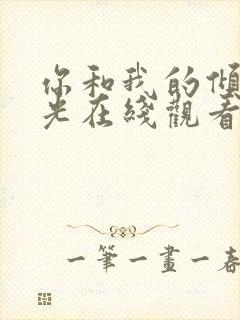 你和我的傾
光在綫觀看
一筆一畫一春